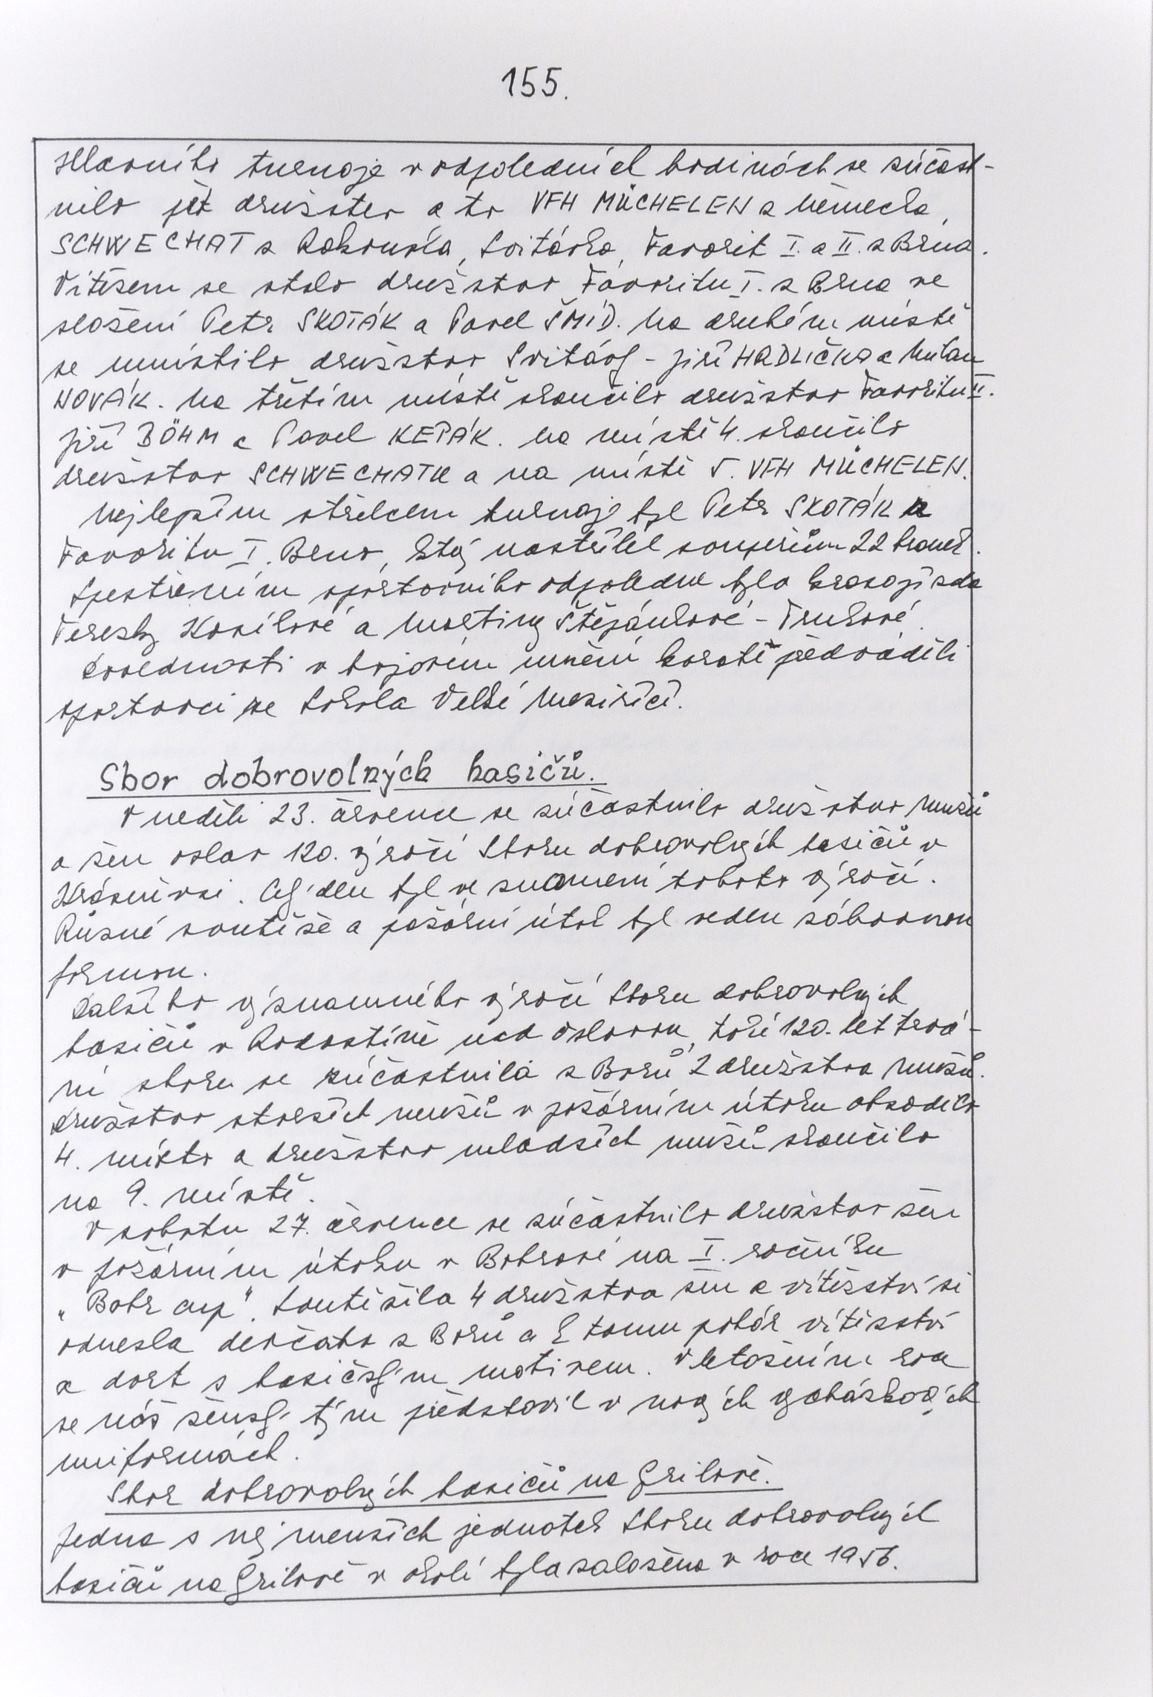 155.
Hlavního turnaje v odpoledních hodinách se zúčast-
nilo pět družstev a to VFH MÜCHELEN z Německa,
SCHWECHAT z Rakouska, Svitávka, Favorit I. a II. z Brna.
Vítězem se stalo družstvo Favoritu I. z Brna ve
složení Petr SKOTÁK a Pavel ŠMÍD. Na druhém místě
se umístilo družstvo Svitávky - Jiří HRDLIČKA a Milan
NOVÁK. Na třetím místě skončilo družstvo Favoritu II.
Jiří BÖHM a Pavel KEPÁK. Na místě 4. skončilo
družstvo SCHWECHATU a na místě 5. VFH MÜCHELEN.
Nejlepším střelcem turnaje byl Petr SKOTÁK z
Favoritu I. Brno, který nastřílel soupeřům 22 branek.
Zpestřením sportovního odpoledne byla krasojízda
Terezky a Martiny Štěpánkové - Trnkové.
Dovednosti v bojovém umění karate předváděli
sportovci ze Sokola Velké Meziříčí.
Sbor dobrovolných hasičů.
V neděli 23. července se zúčastnilo družstvo mužů
a žen oslav 120. výročí Sboru dobrovolných hasičů v
Krásněvsi. Celý den byl ve znamení tohoto výročí.
Různé soutěže a požární útok byl veden zábavnou
formou.
Dalšího významného výročí Sboru dobrovolných
hasičů v Radostíně nad Oslavou, totiž 120. let trvá-
ní sboru se zúčastnila z Borů 2 družstva mužů.
Družstvo starších mužů v požárním útoku obsadilo
4. místo a družstvo mladších mužů skončilo
na 9. místě.
V sobotu 27. července se zúčastnilo družstvo žen
v požárním útoku v Bobrové na I. ročníku
„Bobr cup". Soutěžila 4 družstva žen a vítězství si
odnesla děvčata z Borů a k tomu pohár vítězství
a dort s hasičským motivem. V letošním roce
se náš ženský tým představil v nových vycházkových
uniformách.
Sbor dobrovolných hasičů na Grilově.
Jedna s nejmenších jednotek Sboru dobrovolných
hasičů na Grilově v okolí byla založena v roce 1956.